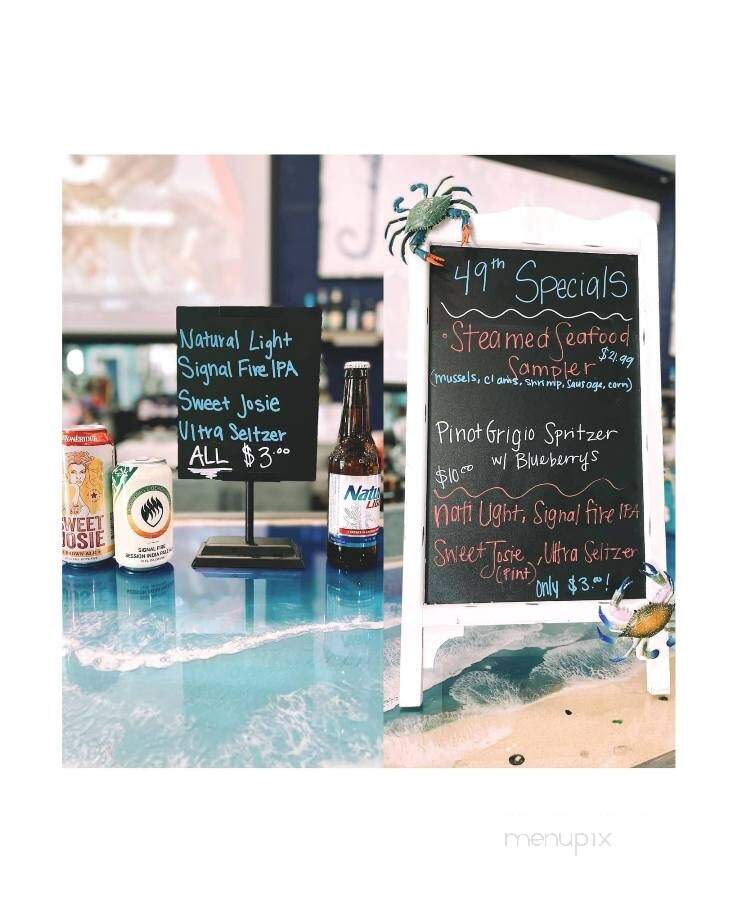 Natural Light
Signal Fire IPA
Sweet Josie
Ultra Seltzer
ALL $3.00
SWEET
JOSIE
BROWN ALE
SIGNAL FIRE
SESSION INDIA PALE
Natu
LIG
49th Specials
• Steamed Seafood
Sampler $21.99
(mussels, clams, shrimp, sausage, corn)
Pinot Grigio Spritzer
w/ Blueberrys
$10.00
nati Light, Signal fire IPA
Sweet Josie, Ultra Seltzer
(Pint)
only $3.00!
menupix